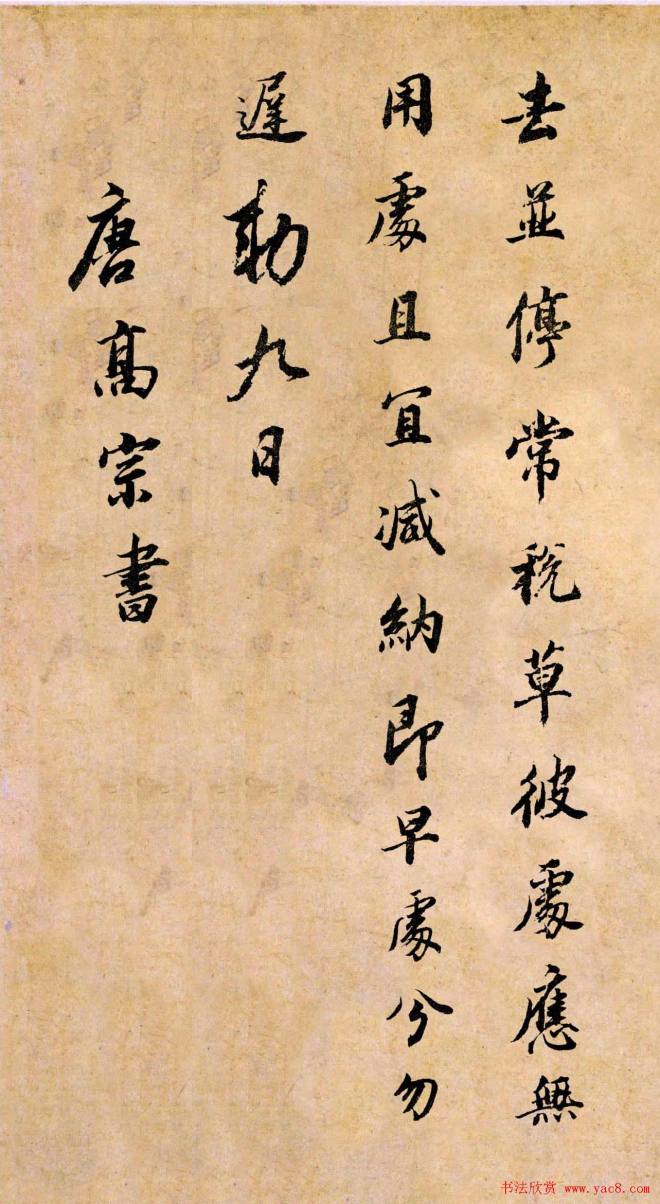 去並停常稅草彼處應無
用處且宜減納即早處分勿
遲勅九日
唐高宗書
书法欣赏 www.yac8.com